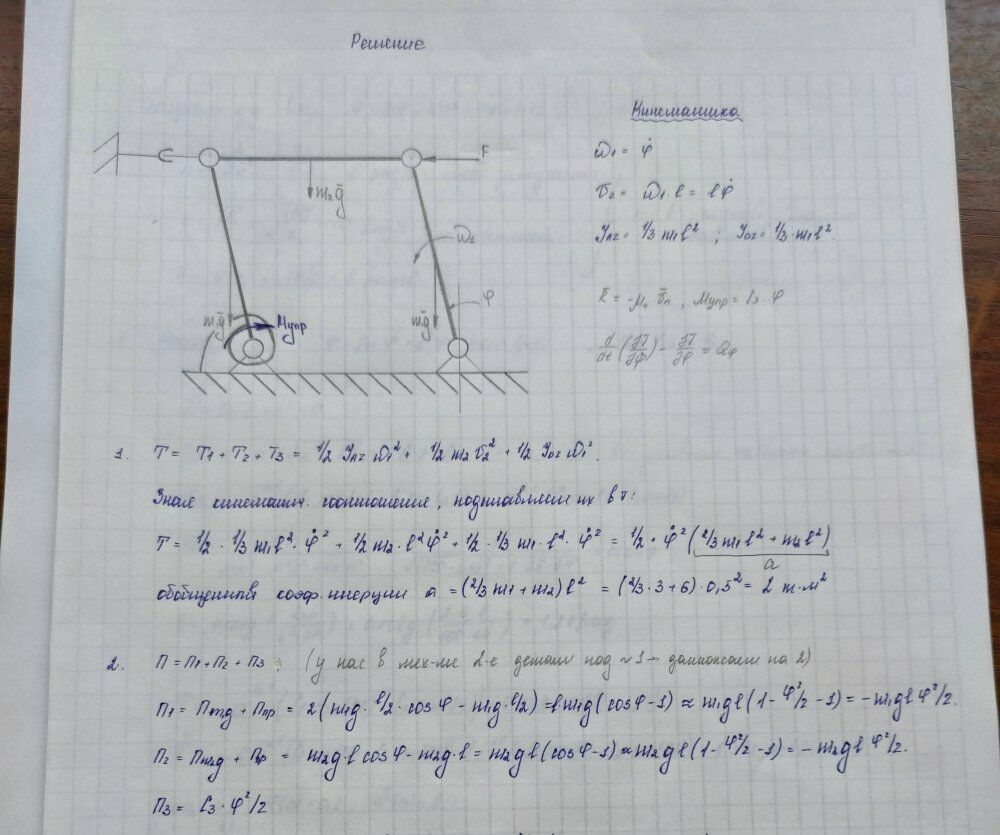 Решение
Кинематика
ω1 = φ̇
F
m2g̅
v2 = ω1·l = lφ̇
ω2
JAz = 1/3 m1l² ; JOz = 1/3·m1l².
φ
m1g̅
Mупр
m1g̅
R̅ = -μ v̅n , Mупр = c3·φ
d/dt (∂T/∂φ̇) - ∂T/∂φ = Qφ
1. T = T1 + T2 + T3 = 1/2 JAz ω1² + 1/2 m2 v2² + 1/2 JOz ω1².
Зная кинематич. соотношение, подставляем их в T:
T = 1/2 · 1/3 m1l² · φ̇² + 1/2 m2 · l²φ̇² + 1/2 · 1/3 m1 · l² · φ̇² = 1/2 · φ̇² (2/3 m1l² + m2l²)
a
обобщенный коэф. инерции a = (2/3 m1 + m2) l² = (2/3 · 3 + 6) · 0,5² = 2 кг·м²
2. П = П1 + П2 + П3 (у нас в мех-ме 2-е детали под №1 - домножаем на 2)
П1 = Пm1g + Ппр = 2(m1g · l/2 · cosφ - m1g · l/2) = lm1g(cosφ - 1) ≈ m1gl(1 - φ²/2 - 1) = - m1gl φ²/2.
П2 = Пm2g + Ппр = m2g·l cosφ - m2g·l = m2gl(cosφ-1) ≈ m2gl(1 - φ²/2 - 1) = - m2gl φ²/2.
П3 = c3 · φ²/2